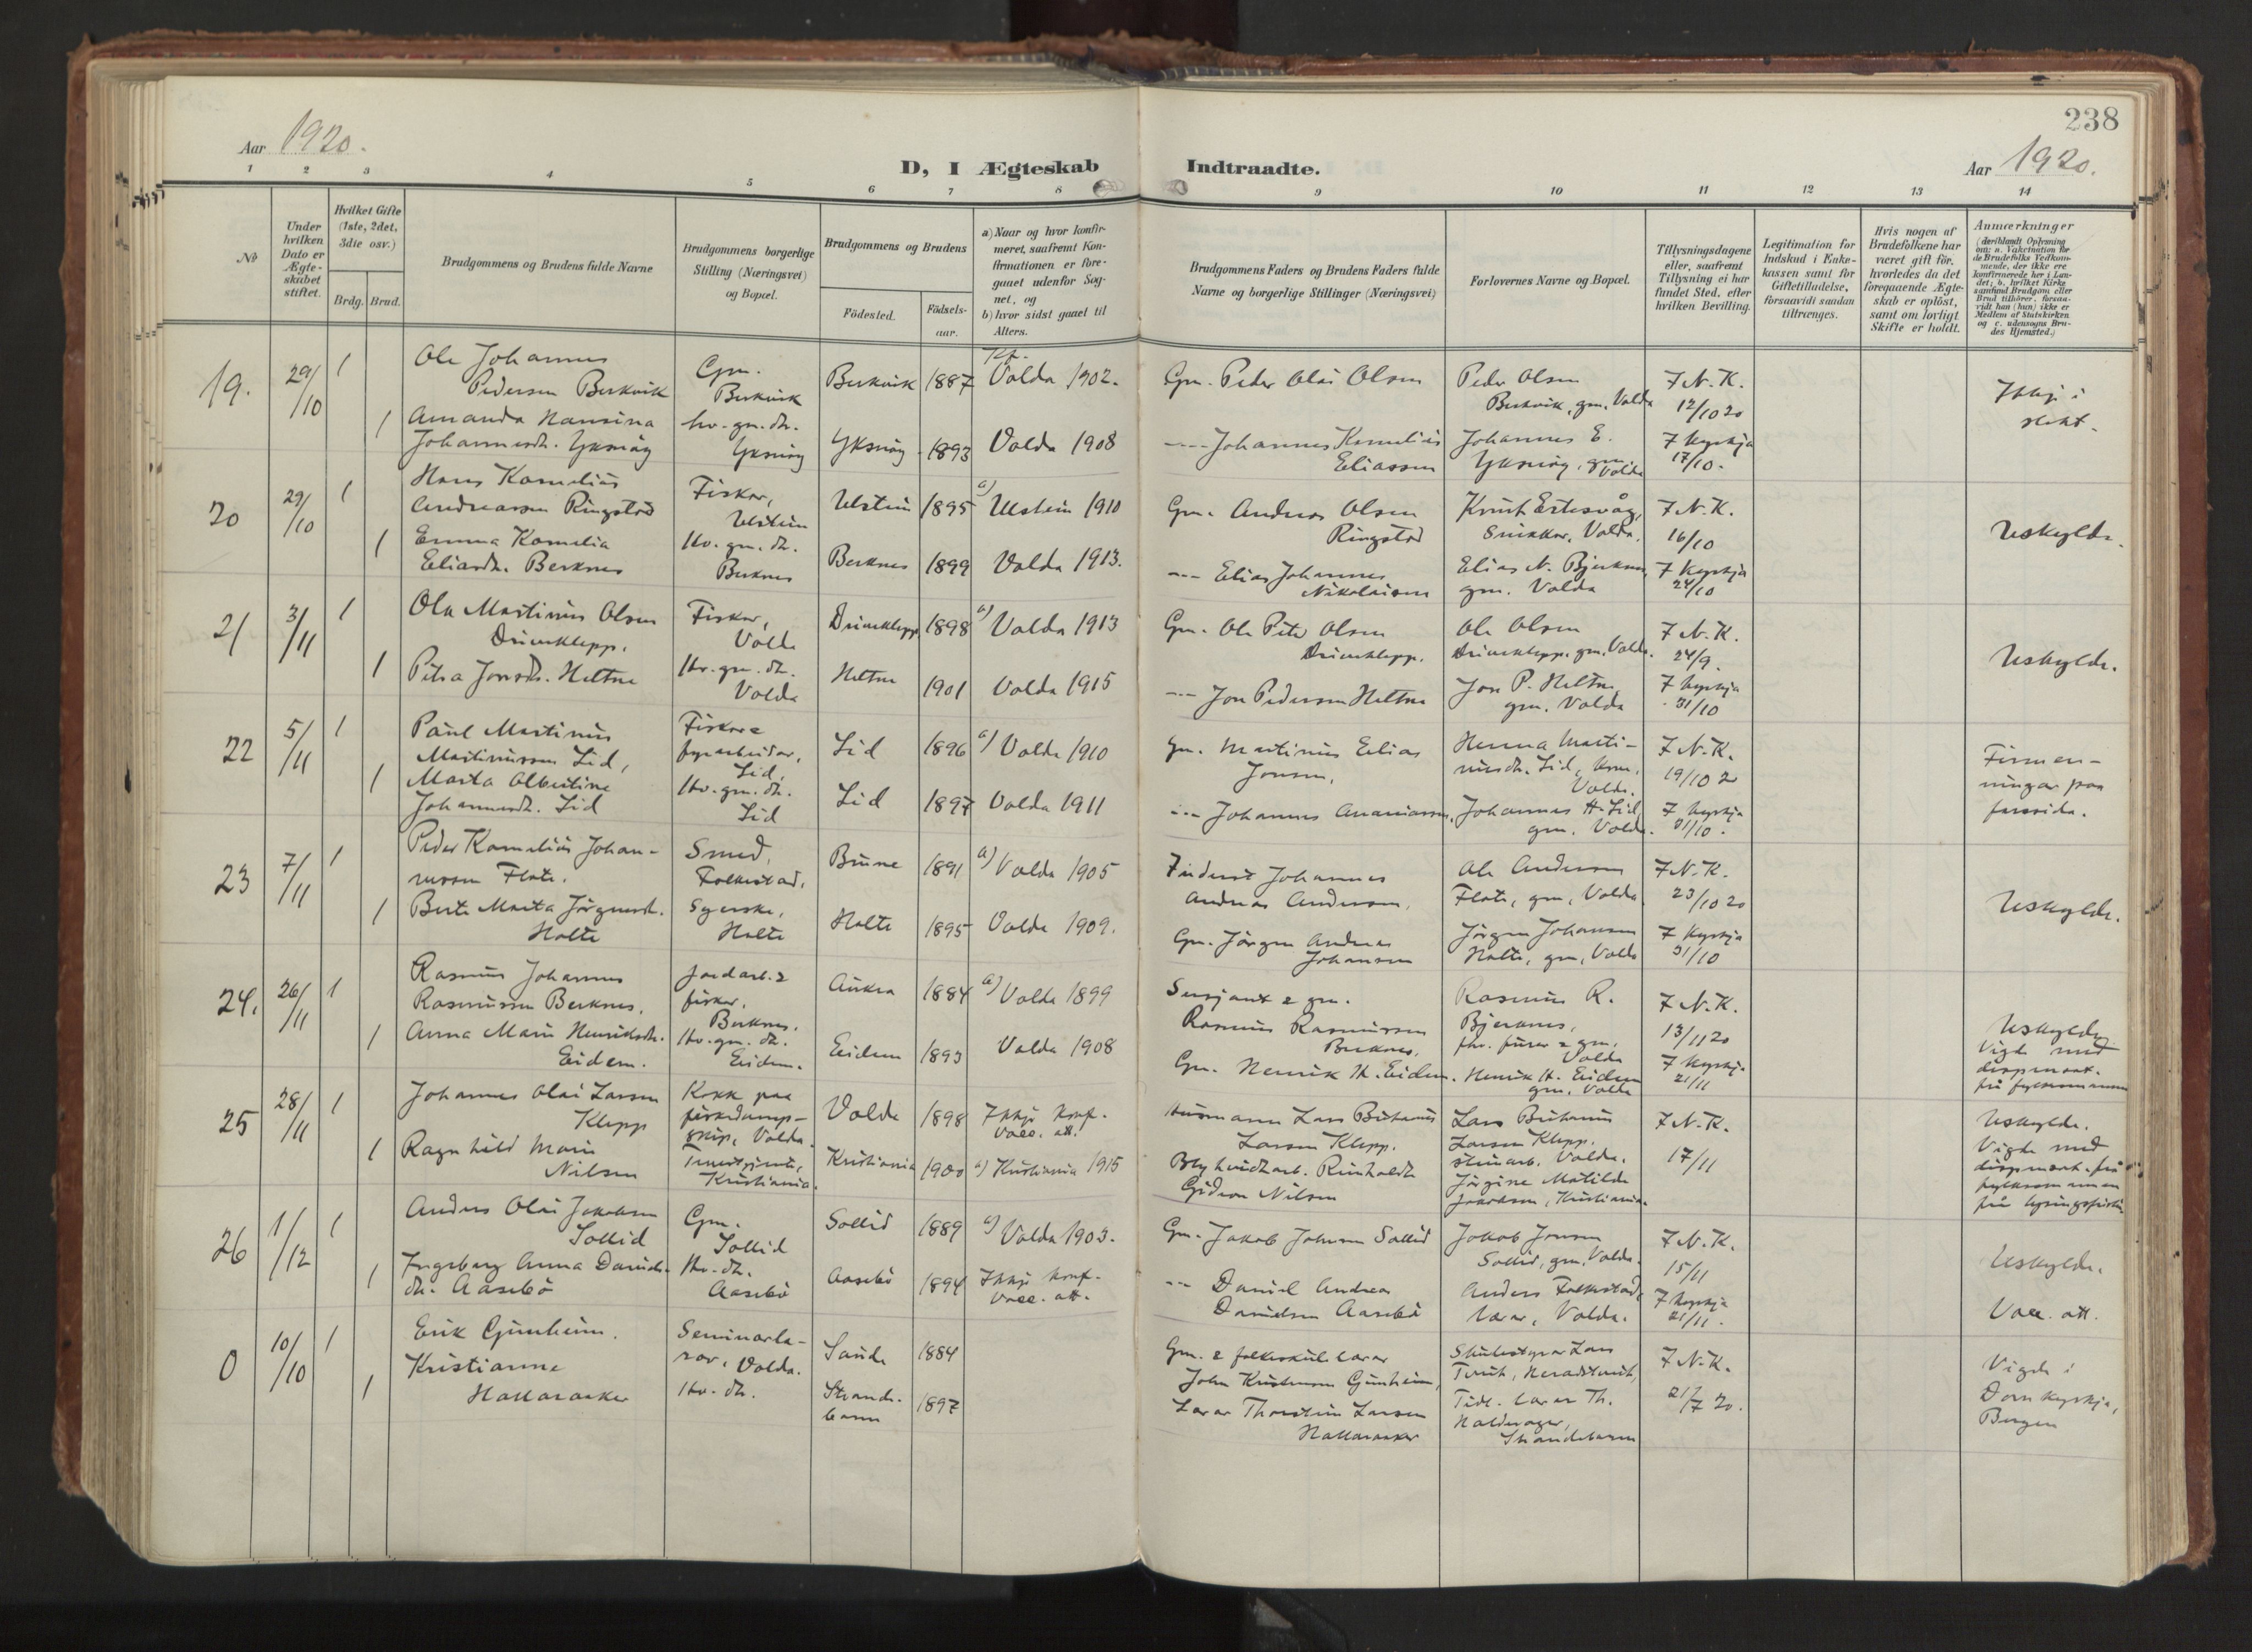 238
Aar 1920.
D, I Ægteskab Indtraadte.
Aar 1920.
1 2 3 4 5 6 7 8 9 10 11 12 13 14
No
Under hvilken Dato er Ægteskabet stiftet.
Hvilket Gifte (1ste, 2det, 3die osv.)
Brdg. Brud.
Brudgommens og Brudens fulde Navne
Brudgommens borgerlige Stilling (Næringsvei) og Bopæl.
Brudgommens og Brudens
Födested.
Födsels-aar.
a) Naar og hvor konfir-
meret, saafremt Kon-
firmationen er fore-
gaaet udenfor Sog-
net, og
b) hvor sidst gaaet til
Alters.
Brudgommens Faders og Brudens Faders fulde
Navne og borgerlige Stillinger (Næringsvei)
Forlovernes Navne og Bopæl.
Tillysningsdagene
eller, saafremt
Tillysning ei har
fundet Sted, efter
hvilken Bevilling.
Legitimation for
Indskud i Enke-
kassen samt for
Giftetilladelse,
forsaavidt saadan
tiltrænges.
Hvis nogen af
Brudefolkene har
været gift för,
hvorledes da det
foregaaende Ægte-
skab er oplöst,
samt om lovligt
Skifte er holdt.
Anmærkninger
(deriblandt Oplysning
om: a. Vaksination for
de Brudefolks Vedkom-
mende, der ikke ere
konfirmerede her i Lan-
det; b. hvilket Kirke-
samfund Brudgom eller
Brud tilhörer, forsaa-
vidt han (hun) ikke er
Medlem af Statskirken
og c. udensogns Bru-
des Hjemsted.)
19. 29/10 1
Ole Johannes
Pedersen Berkvik
Gm.
Berkvik
Berkvik 1887
Kf.
Volda 1902.
Gm. Peder Olai Olsen
Peder Olsen
Berkvik, gm. Volda
7 N. K.
12/10 20
Ikkje i
slekt.
1
Amanda Nansina
Johannesdt. Yksnöy
hv. gm. dt.
Yksnöy
Yksnöy 1893
Volda 1908
--- Johannes Kornelius
Eliassen
Johannes E.
Yksnöy, gm. Volda
7 kyrkja
17/10.
20 29/10 1
Hans Kornelius
Andreassen Ringstad
Fisker,
Ulstein
Ulstein 1895
a) Ulstein 1910
Gm. Andreas Olsen
Ringstad
Knut Ertesvåg,
Snikkar, Volda.
7 N. K.
16/10
Uskylde.
1
Emma Kornelia
Eliasdt. Berknes
Hv. gm. dt.
Berknes
Berknes 1899
Volda 1913.
--- Elias Johannes
Nikolaisen
Elias N. Bjerknes,
gm. Volda
7 kyrkja
24/10
21 3/11 1
Ola Martinus Olsen
Driveklepp.
Fisker,
Volda
Driveklepp 1898
a) Volda 1913
Gm. Ole Peter Olsen
Driveklepp.
Ole Olsen
Driveklepp, gm. Volda.
7 N. K.
24/9.
Uskylde.
1
Petra Jonsdt. Heltne
Hv. gm. dt.
Volda
Heltne 1901
Volda 1915
--- Jon Pedersen Heltne
Jon P. Heltne,
gm. Volda
7 kyrkja
31/10
22 5/11 1
Paul Martinus
Martinussen Lid,
Fisker &
fyrarbeidar,
Lid.
Lid 1896
a) Volda 1910
Gm. Martinus Elias
Jonsen,
Henna Marti-
nusdt. Lid, kone,
Volda.
7 N. K.
19/10 20
Firmen-
ningar paa
farssida.
1
Marta Albertine
Johannesdt. Lid
Hv. gm. dt.
Lid
Lid 1897
Volda 1911
--- Johannes Ananiassen,
Johannes A. Lid,
gm. Volda.
7 kyrkja
31/10.
23 7/11 1
Peder Kornelius Johan-
nessen Flote.
Smed,
Folkestad.
Brune 1891
a) Volda 1905
Inderst Johannes
Andreas Andersen.
Ole Andersen
Flote, gm, Volda
7 N. K.
23/10 20
Uskylde.
1
Berte Marta Jörgensdt.
Holte
Syerske,
Holte
Holte 1895
Volda 1909.
Gm. Jörgen Andreas
Johansen
Jörgen Johansen
Holte, gm, Volda
7 kyrkja
31/10
24. 26/11 1
Rasmus Johannes
Rasmussen Berknes.
Jordarb. &
fisker.
Berknes.
Aukra 1884
a) Volda 1899
Sersjant & gm.
Rasmus Rasmussen
Berknes.
Rasmus R.
Bjerknes,
fhv. furer & gm.
Volda
7 N. K.
13/11 20
Uskylde.
Vigde med
dispensat.
frå fylkesmannen
1
Anna Marie Henriksdt.
Eidem.
Hv. gm. dt.
Eidem.
Eidem 1893
Volda 1908
Gm. Henrik H. Eidem.
Henrik H. Eidem
gm. Volda
7 kyrkja
21/11
25 28/11 1
Johannes Olai Larsen
Klepp
Kokk paa
fiskedamp-
skip, Volda.
Volda 1898
Ikkje konf.
Vacc. att.
Husmann Lars Bertanus
Larsen Klepp.
Lars Bertanus
Larsen Klepp.
steinarb. Volda.
7 N. K.
17/11
Uskylde.
Vigde med
dispensat. frå
fylkesmannen
frå lysingsfristen
1
Ragnhild Marie
Nilsen
Tenestgjente,
Kristiania.
Kristiania 1900
a) Kristiania 1915
Blyhvidtarb. Reinholdt
Gideon Nilsen
Jörgine Matilde
Jakobsen, Kristiania.
26 1/12 1
Anders Olai Jakobsen
Sollid
Gm.
Sollid
Sollid 1889
a) Volda 1903.
Gm. Jakob Johnsen Sollid
Jakob Jonsen
Sollid, gm. Volda.
7 N. K.
15/11
Uskylde.
1
Ingeborg Anna Daniels-
dt. Aasebö
Hv. dt.
Aasebö
Aasebö 1894
Ikkje konf.
Vacc. att.
--- Daniel Andreas
Danielsen Aasebö
Anders Folkestad,
lærar, Volda.
7 kyrkja
21/11.
Vacc. att.
0 10/10 1
Erik Gjunheim.
Seminarlæ-
rar, Volda.
Saude 1884
Gm. & folkeskulelærar
John Kristensen Gjunheim,
Skulestyrar Lars
Tveit, Heradstveit,
7 N. K.
21/7 20.
Vigde i
Domkyrkja,
Bergen
1
Kristianne
Hallaraaker
Hv. dt.
Strande-
barm 1897
Lærar Thorstein Larsen
Hallaraaker
Tidl. lærar Th.
Haldoraker,
Strandebarm